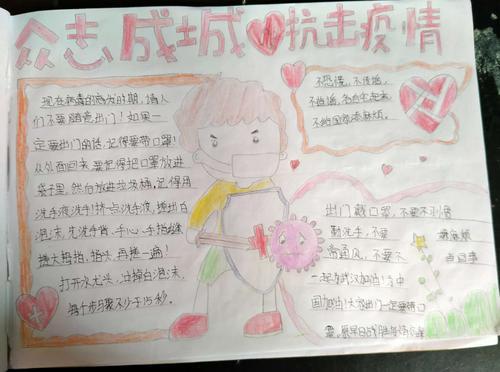 众志成城抗击疫情
现在病毒的高发时期,请人
们不要随意出门!如果一
定要出门的话,记得要带口罩!
从外面回来,要记得把口罩放进
袋子里,然后放进垃圾桶,记得用
洗手液洗手!挤一点洗手液,搓出白
泡沫,先洗手背、手心、手指缝
搓大拇指,指头,再搓一遍!
打开水龙头,冲掉白泡沫,
每个步骤不少于15秒。
不恐慌,不传谣,
不给国家添麻烦。
出门戴口罩,不要不到
勤洗手,不要
常通风,不要不
一起为武汉加油!为中
国加油!大家出门一定要带口
罩,